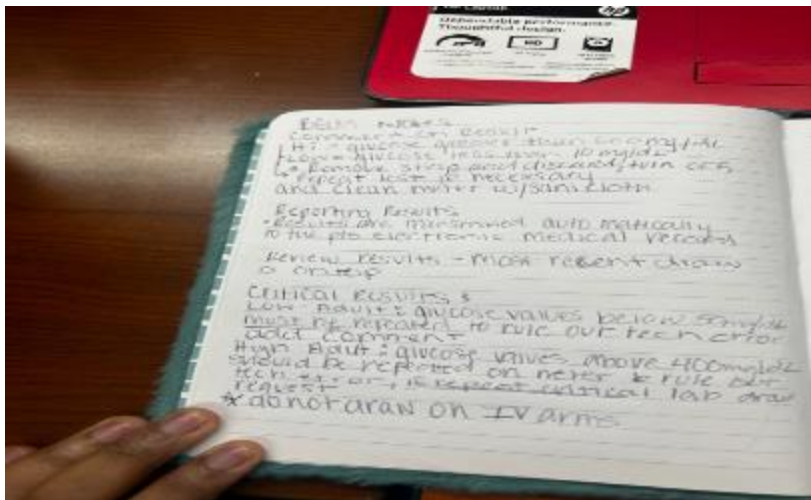 Dependable performance.
Thoughtful design.
hp
HD
Notes
Comment on Result
Hi = glucose greater than 600mg/dL
Low = glucose less than 10 mg/dL
Remove strip and discard, turn off,
Repeat test if necessary
and clean meter w/sanicloth
Reporting Results
• Results are transmitted automatically
to the pts electronic medical record
Review results - most recent draw
on top
Critical Results
Low Adult: glucose values below 50mg/dL
must be repeated to rule out tech error
add comment
High Adult: glucose values above 400mg/dL
should be repeated on to rule out
tech error, repeat critical lab draw
request
* do not draw on IV arms